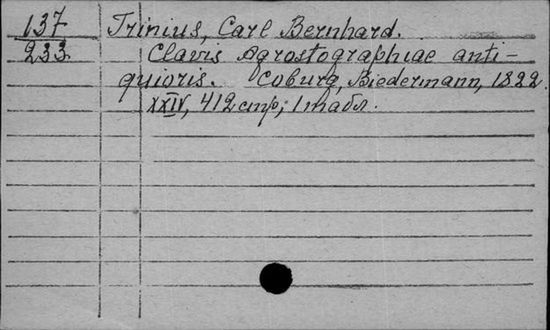 137 Trinius, Carl Bernhard.
233 Clavis Agrostographiae anti-
quioris. Coburg, Biedermann, 1822.
XXIV, 412 стр; 1 табл.